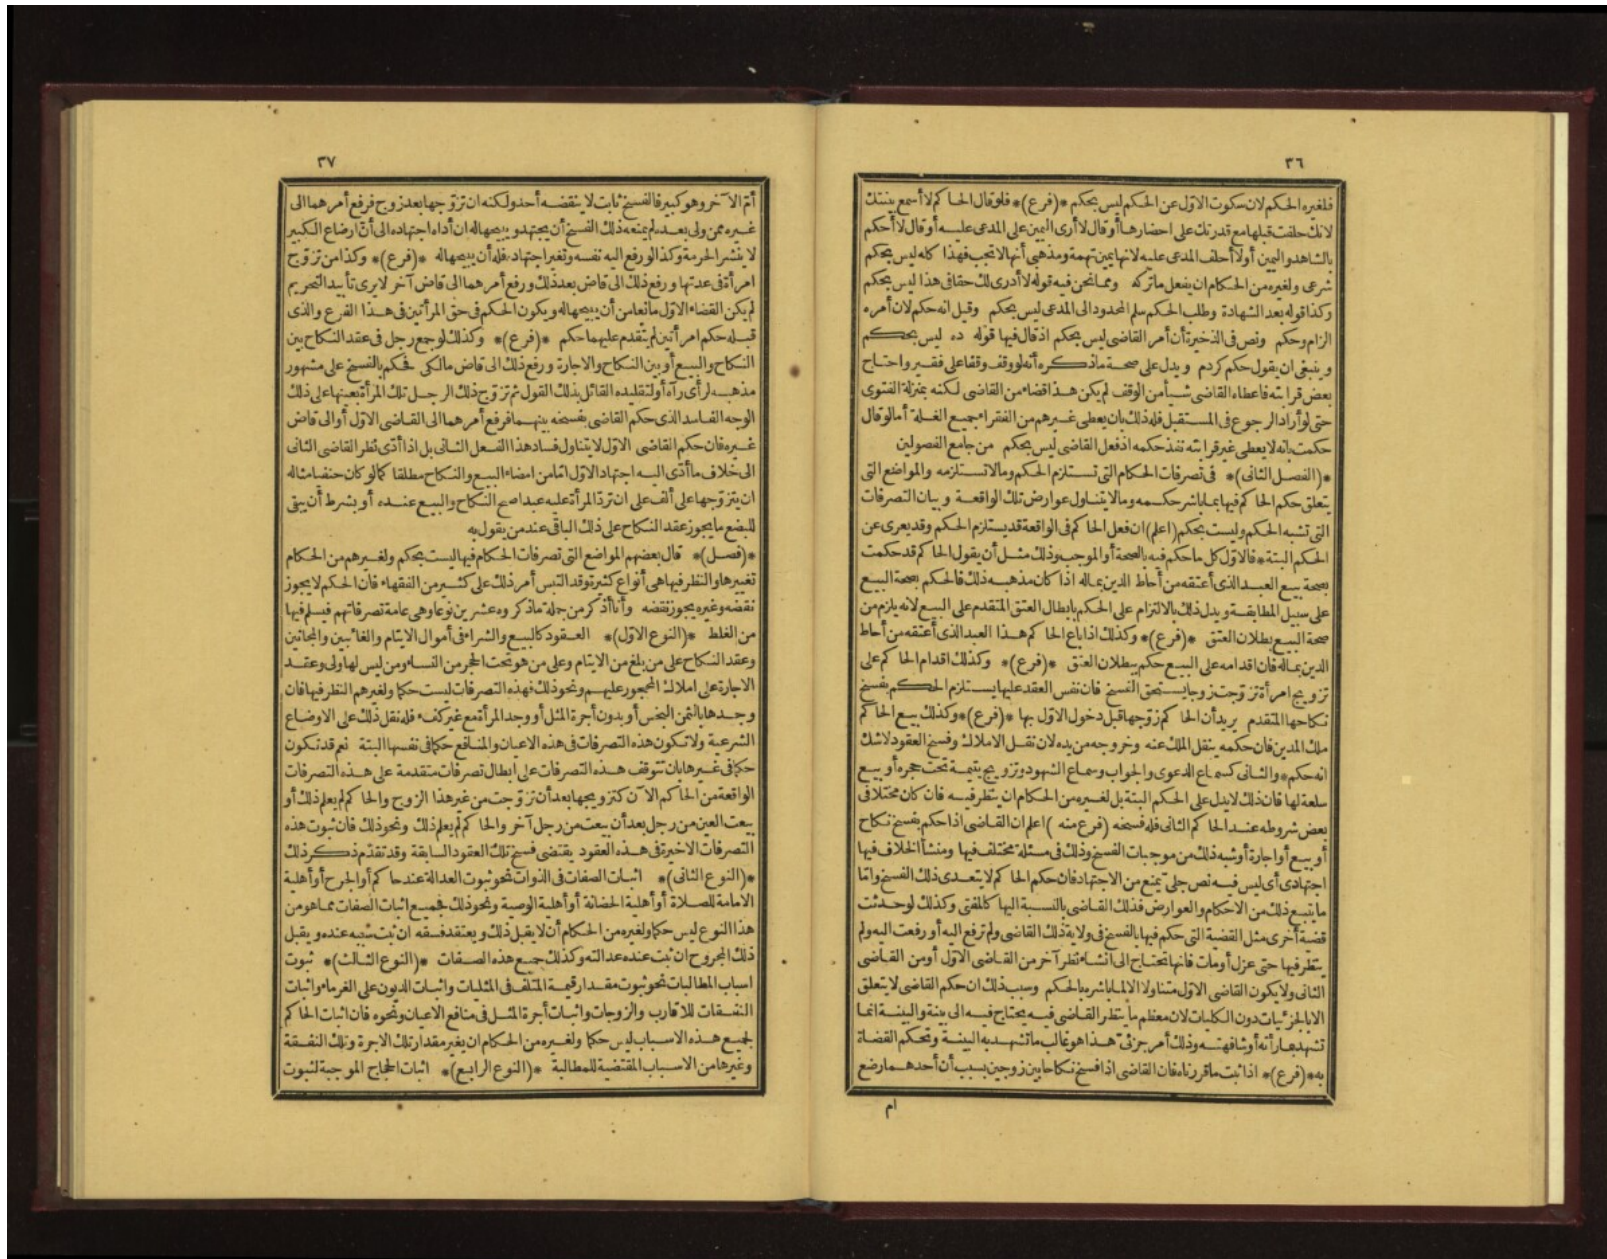 ٣٦
فلغيره الحكم لان سكوت الاول عن الحكم ليس بحكم *(فرع)* فلو قال الحاكم لا أسمع بينتك
لانك حلفت قبلها مع قدرتك على احضارها أو قال لا أرى اليمين على المدعى عليه أو قال لا أحكم
بالشاهد واليمين أو لا أحلف المدعى عليه لانها يمين تهمة ومذهبي أنها لا تجب فهذا كله ليس بحكم
شرعى ولغيره من الحكام ان يفعل ما تركه ومما نحن فيه قوله لا أدرى لك حقا فى هذا ليس بحكم
وكذا قوله بعد الشهادة وطلب الحكم سلم المحدود الى المدعى ليس بحكم وقيل انه حكم لان أمره
الزام وحكم ونص فى الذخيرة أن أمر القاضى ليس بحكم اذ قال فيها قوله ده ليس بحكم
وينبغى ان يقول حكم كردم ويدل على صحة ما ذكره أنه لو وقف وقفا على فقير واحتاج
بعض قرابته فاعطاه القاضى شيأ من الوقف لم يكن هذا قضاء من القاضى لكنه بمنزلة الفتوى
حتى لو أراد الرجوع فى المستقبل فله ذلك بان يعطى غيرهم من الفقراء جميع الغلة أما لو قال
حكمت بانه لا يعطى غير قرابته نفذ حكمه اذ فعل القاضى ليس بحكم من جامع الفصولين
*(الفصل الثانى)* فى تصرفات الحكام التى تستلزم الحكم وما لا تستلزمه والمواضع التى
يتعلق حكم الحاكم فيها بما باشر حكمه وما لا يتناول عوارض تلك الواقعة وبيان التصرفات
التى تشبه الحكم وليست بحكم (اعلم) ان فعل الحاكم فى الواقعة قد يستلزم الحكم وقد يعرى عن
الحكم البتة * فالاول كل ما حكم فيه بالصحة أو الموجب وذلك مثل أن يقول الحاكم قد حكمت
بصحة بيع العبد الذى أعتقه من أحاط الدين بماله اذا كان مذهبه ذلك فالحكم بصحة البيع
على سبيل المطابقة ويدل ذلك بالالتزام على الحكم بابطال العتق المتقدم على البيع لانه يلزم من
صحة البيع بطلان العتق *(فرع)* وكذلك اذا باع الحاكم هذا العبد الذى أعتقه من أحاط
الدين بماله فان اقدامه على البيع حكم ببطلان العتق *(فرع)* وكذلك اقدام الحاكم على
تزويج امرأة تزوجت زوجا يستحق الفسخ فان نفس العقد عليها يستلزم الحكم بفسخ
نكاحها المتقدم يريد أن الحاكم زوجها قبل دخول الاول بها *(فرع)* وكذلك بيع الحاكم
ملك المدين فان حكمه ينقل الملك عنه وخروجه من يده لان نقل الاملاك وفسخ العقود لا شك
انه حكم * والثانى كسماع الدعوى والجواب وسماع الشهود وتزويج يتيمة تحت حجره أو بيع
سلعة لها فان ذلك لا يدل على الحكم البتة بل لغيره من الحكام ان ينظر فيه فان كان مختلا فى
بعض شروطه عند الحاكم الثانى فله فسخه (فرع منه) اعلم ان القاضى اذا حكم بفسخ نكاح
أو بيع أو اجارة أو شبه ذلك من موجبات الفسخ وذلك فى مسئلة مختلف فيها ومنشأ الخلاف فيها
اجتهادى أى ليس فيه نص جلى يمنع من الاجتهاد فان حكم الحاكم لا يتعدى ذلك الفسخ وأما
ما يتبع ذلك من الاحكام والعوارض فذلك القاضى بالنسبة اليها كالمفتى وكذلك لو حدثت
قضية أخرى مثل القضية التى حكم فيها بالفسخ فى ولاية ذلك القاضى ولم ترفع اليه أو رفعت اليه ولم
ينظر فيها حتى عزل أو مات فانها تحتاج الى انشاء نظر آخر من القاضى الاول أو من القاضى
الثانى ولا يكون القاضى الاول متناولا الا لما باشره بالحكم وسبب ذلك ان حكم القاضى لا يتعلق
الا بالجزئيات دون الكليات لان معظم ما ينظر القاضى فيه يحتاج فيه الى بينة والبينة انما
تشهد بما رأته أو شافهته وذلك أمر جزئى هذا هو غالب ما تشهد به البينة وتحكم القضاة
به *(فرع)* اذا ثبت ما قررناه فان القاضى اذا فسخ نكاحا بين زوجين بسبب أن أحدهما رضع
ام
٣٧
أم الآخر وهو كبير فالفسخ ثابت لا ينقضه أحد ولكنه ان تزوجها بعد زوج فرفع أمرهما الى
غيره ممن ولى بعده لم يمنعه ذلك الفسخ أن يجتهد ويبيحها له ان أداه اجتهاده الى أن ارضاع الكبير
لا ينشر الحرمة وكذا لو رفع اليه نفسه وتغير اجتهاده فله أن يبيحها له *(فرع)* وكذا من تزوج
امرأة فى عدتها ورفع ذلك الى قاض بعد ذلك ورفع أمرهما الى قاض آخر لا يرى تأبيد التحريم
لم يكن القضاء الاول مانعا من أن يبيحها له ويكون الحكم فى حق المرأتين فى هذا الفرع والذى
قبله حكم امرأتين لم يتقدم عليهما حكم *(فرع)* وكذلك لو جمع رجل فى عقد النكاح بين
النكاح والبيع أو بين النكاح والاجارة ورفع ذلك الى قاض مالكى فحكم بالفسخ على مشهور
مذهبه لرأى رآه أو لتقليده القائل بذلك القول ثم تزوج ذلك الرجل تلك المرأة بعينها على ذلك
الوجه الفاسد الذى حكم القاضى بفسخه بينهما فرفع أمرهما الى القاضى الاول أو الى قاض
غيره فان حكم القاضى الاول لا يتناول فساد هذا الفعل الثانى بل اذا أدى نظر القاضى الثانى
الى خلاف ما أدى اليه اجتهاد الاول امامن امضاء البيع والنكاح مطلقا كما لو كان حنفيا مثاله
ان يتزوجها على ألف على ان ترد المرأة عليه عبدا صح النكاح والبيع عنده أو بشرط أن يبقى
للبضع ما يجوز عقد النكاح على ذلك الباقى عند من يقول به
*(فصل)* قال بعضهم المواضع التى تصرفات الحكام فيها ليست بحكم ولغيرهم من الحكام
تغييرها والنظر فيها هى أنواع كثيرة وقد التبس أمر ذلك على كثير من الفقهاء فان الحكم لا يجوز
نقضه وغيره يجوز نقضه وأنا أذكر من جملة ما ذكروه عشرين نوعا وهى عامة تصرفاتهم فيسلم فيها
من الغلط *(النوع الاول)* العقود كالبيع والشراء فى أموال الايتام والغائبين والمجانين
وعقد النكاح على من بلغ من الايتام وعلى من هو تحت الحجر من النساء ومن ليس لها ولى وعقد
الاجارة على املاك المحجور عليهم ونحو ذلك فهذه التصرفات ليست حكما ولغيرهم النظر فيها فان
وجدها بالثمن البخس أو بدون أجرة المثل أو وجد المرأة مع غير كفء فله نقل ذلك على الاوضاع
الشرعية ولا تكون هذه التصرفات فى هذه الاعيان والمنافع حكما فى نفسها البتة نعم قد تكون
حكما فى غيرها بان تتوقف هذه التصرفات على ابطال تصرفات متقدمة على هذه التصرفات
الواقعة من الحاكم الآن كتزويجها بعد أن تزوجت من غير هذا الزوج والحاكم لم يعلم ذلك أو
بيعت العين من رجل بعد أن بيعت من رجل آخر والحاكم لم يعلم ذلك ونحو ذلك فان ثبوت هذه
التصرفات الاخيرة فى هذه العقود يقتضى فسخ تلك العقود السابقة وقد تقدم ذكر ذلك
*(النوع الثانى)* اثبات الصفات فى الذوات نحو ثبوت العدالة عند حاكم أو الجرح أو أهلية
الامامة للصلاة أو أهلية الحضانة أو أهلية الوصية ونحو ذلك فجميع اثبات الصفات مما هو من
هذا النوع ليس حكما ولغيره من الحكام أن لا يقبل ذلك ويعتقد فسقه ان ثبت سببه عنده ويقبل
ذلك المجروح ان ثبت عنده عدالته وكذلك جميع هذه الصفات *(النوع الثالث)* ثبوت
اسباب المطالبات نحو ثبوت مقدار قيمة المتلف فى المثليات واثبات الديون على الغرماء واثبات
النفقات للاقارب والزوجات واثبات أجرة المثل فى منافع الاعيان ونحوه فان اثبات الحاكم
لجميع هذه الاسباب ليس حكما ولغيره من الحكام ان يغير مقدار تلك الاجرة وتلك النفقة
وغيرها من الاسباب المقتضية للمطالبة *(النوع الرابع)* اثبات الحجاج الموجبة لثبوت